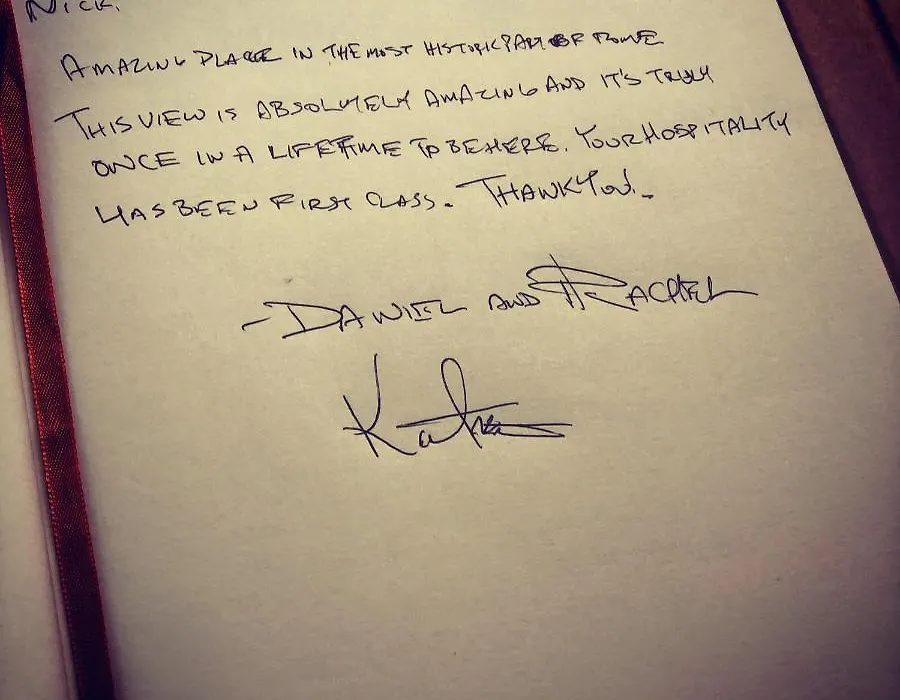 NICK.
AMAZING PLACE IN THE MOST HISTORIC PART OF ROME
THIS VIEW IS ABSOLUTELY AMAZING AND IT'S TRULY
ONCE IN A LIFETIME TO BE HERE. YOUR HOSPITALITY
HAS BEEN FIRST CLASS. THANK YOU.
- DANIEL AND RACHEL